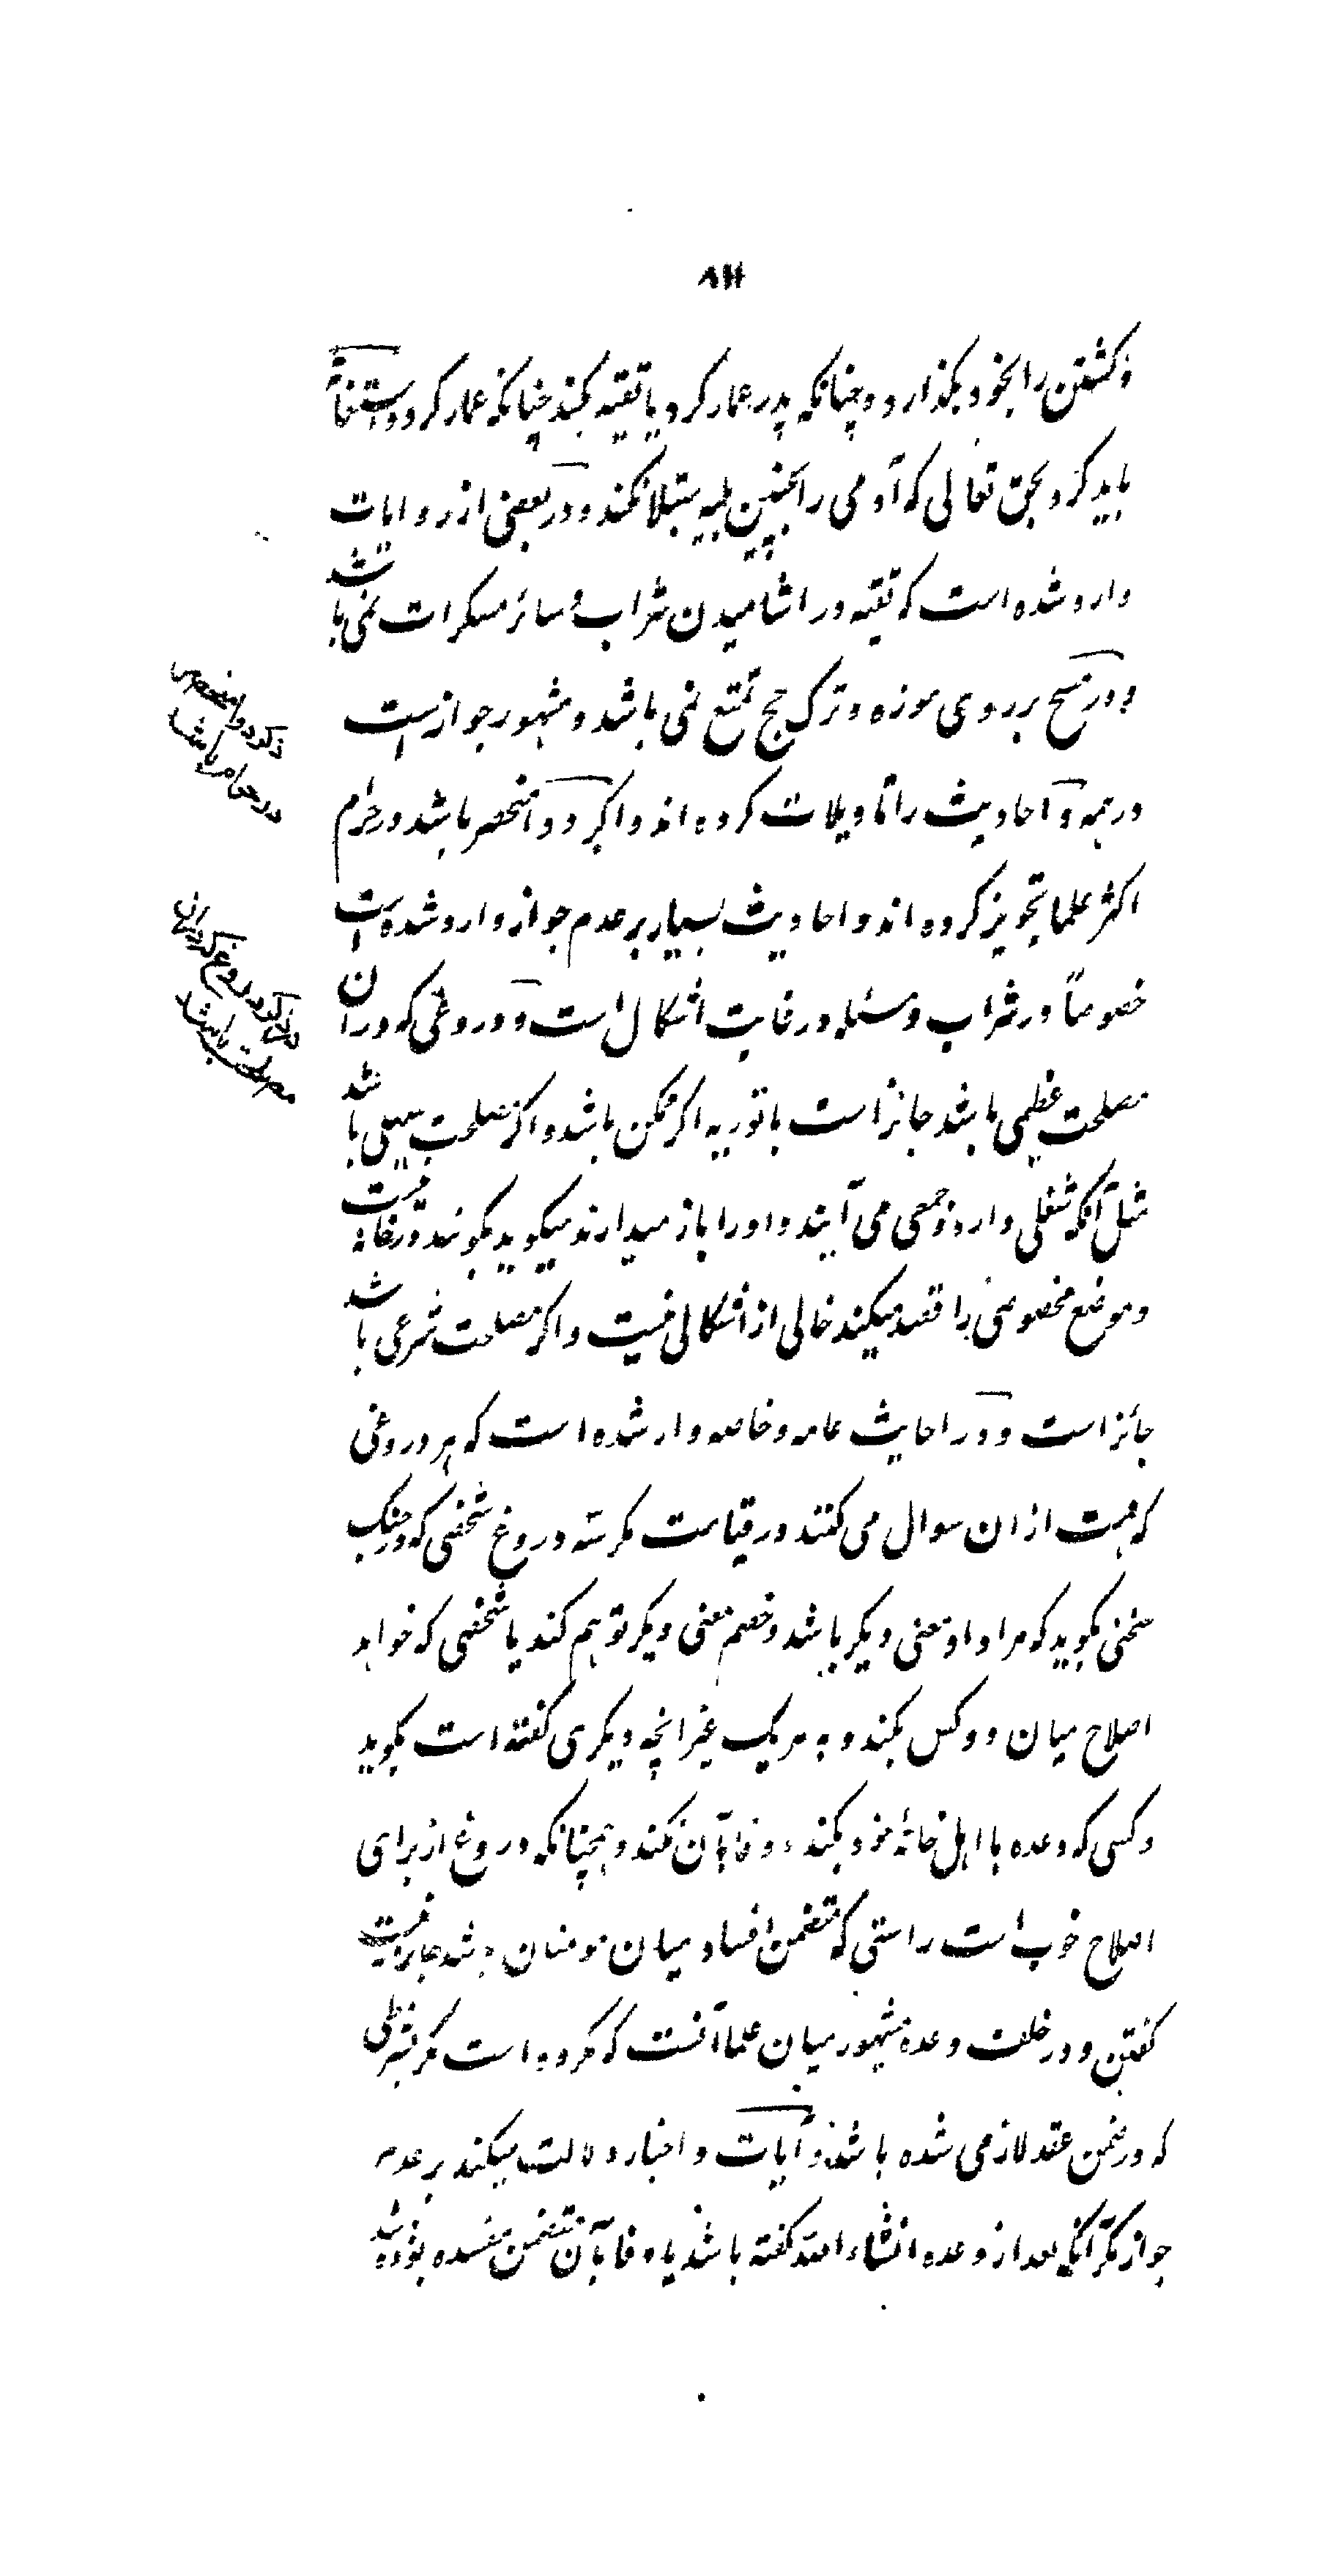 ۸۱۱
و کشتن را بخود بگذارد و چنانکه پدر عمار کرد یا تقیه بکند چنانکه عمار کرد و استغاثه
باید کرد بحق تعالی که آدمی را بچنین بلیه مبتلا نکند و در بعضی از روایات
وارد شده است که تقیه در اشامیدن شراب و سائر مسکرات نمی باشد
و در مسح بر روی موزه و ترک حج تمتع نمی باشد و مشهور جواز است
در همه و احادیث را تاویلات کرده اند و اگر دوا منحصر باشد در حرام
اکثر علما تجویز کرده اند و احادیث بسیار بر عدم جواز وارد شده است
خصوصاً در شراب و مسئله در غایت اشکال است و دروغی که در ان
مصلحت عظیمی باشد جائز است با توریه اگر ممکن باشد و اگر مصلحت سهلی باشد
مثل آنکه شغلی دارد و جمعی می آیند و او را باز میدارند میگوید بگویند در خانه نیست
و موضع مخصوصی را قصد میکند خالی از اشکالی نیست و اگر مصلحت شرعی باشد
جائز است و در احایث عامه و خاصه وارد شده است که هر دروغی
که هست از ان سوال می کنند در قیامت مگر سه دروغ شخصی که در جنگ
سخنی بگوید که مراد او معنی دیگر باشد و خصم معنی دیگر توهم کند یا شخصی که خواهد
اصلاح میان دو کس بکند و به هر یک غیر انچه دیگری گفته است بگوید
و کسی که وعده با اهل خانهٔ خود بکند و وفا بآن نکند و همچنانکه دروغ از برای
اصلاح خوب است راستی که متضمن افساد میان مومنان باشد جایز نیست
گفتن و در خلف وعده مشهور میان علما آنست که مکروه است مگر شرطی
که در ضمن عقد لازمی شده باشد و آیات و اخبار دلالت میکند بر عدم
جواز مگر آنکه بعد از وعده انشاء الله گفته باشد یا وفا بآن متضمن مفسده بوده باشد
ذکر دوا منحصر
در حرام باشد
ذکر دروغ که در ان
مصلحت باشد